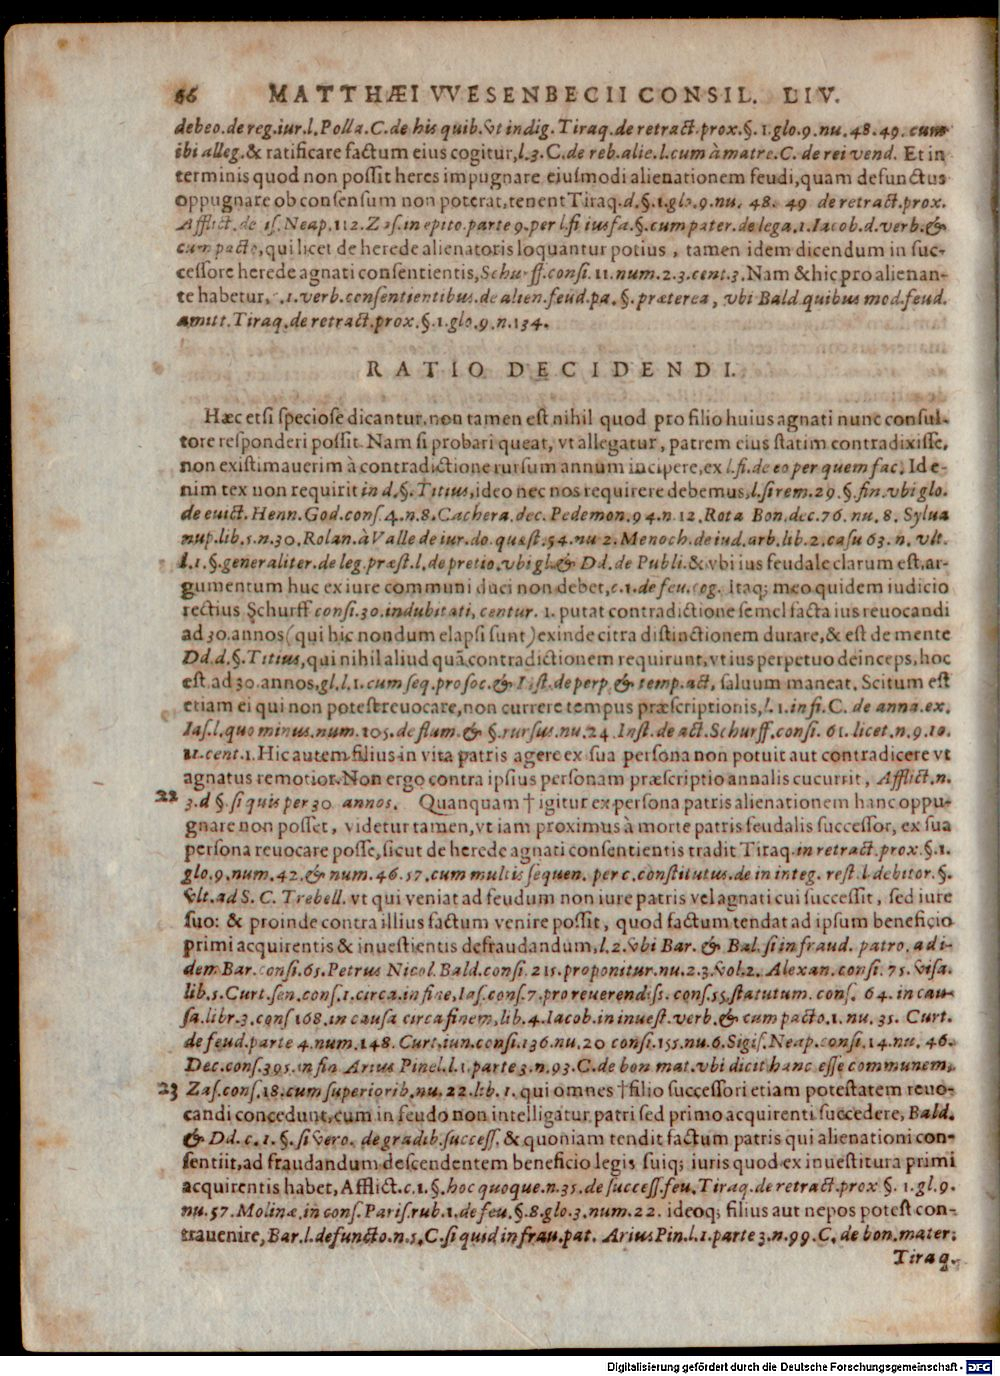 66 MATTHÆI VVESENBECII CONSIL. LIV.
debeo.de reg.iur.l.Polla.C.de his quib.vt indig.Tiraq.de retract.prox.§.1.glo.9.nu.48.49.cum
ibi alleg.& ratificare factum eius cogitur,l.3.C.de reb.alie.l.cum à matre.C.de rei vend. Et in
terminis quod non possit heres impugnare eiusmodi alienationem feudi,quam defunctus
oppugnare ob consensum non poterat,tenent Tiraq.d.§.1.glo.9.nu. 48. 49 de retract.prox.
Afflict.de is.Neap.112.Zas.in epito.parte 9.per l.fi ius fa.§.cum pater.de lega.1.Iacob.d.verb.&
cum pacto,qui licet de herede alienatoris loquantur potius , tamen idem dicendum in suc-
cessore herede agnati consentientis,Schurff.consi. 11.num.2.3.cent.3.Nam & hic pro alienan-
te habetur, .1.verb.consentientibus.de alien.feud.pa.§.præterea, vbi Bald.quibus mod.feud.
amitt.Tiraq.de retract.prox.§.1.glo.9.n.134.
RATIO DECIDENDI.
Hæc etsi speciose dicantur,non tamen est nihil quod pro filio huius agnati nunc consul-
tore responderi possit.Nam si probari queat, vt allegatur, patrem eius statim contradixisse,
non existimauerim à contradictione rursum annum incipere,ex l.fi.de eo per quem fac. Id e-
nim tex non requirit in d.§.Titius,ideo nec nos requirere debemus,l.si rem.29.§.fin.vbi glo.
de euict. Henn. God.cons.4.n.8.Cachera.dec. Pedemon.94.n 12.Rota Bon.dec.76. nu. 8. Sylua
nup.lib.5.n.30.Rolan.à Valle de iur.do.quæst.54.nu 2.Menoch.de iud.arb.lib.2.casu 63. n. vlt.
l.1.§.generaliter.de leg.præst.l.de pretio.vbi gl.& Dd.de Publi.& vbi ius feudale clarum est,ar-
gumentum huc ex iure communi duci non debet,c.1.de feu.cog. Itaq; meo quidem iudicio
rectius Schurff consi.30.indubitati, centur. 1. putat contradictione semel facta ius reuocandi
ad 30.annos(qui hic nondum elapsi sunt)exinde citra distinctionem durare,& est de mente
Dd.d.§.Titius,qui nihil aliud quã contradictionem requirunt,vt ius perpetuo deinceps,hoc
est ad 30.annos,gl.l.1.cum seq.pro soc.& Inst.de perp.& temp.act, saluum maneat. Scitum est
etiam ei qui non potest reuocare,non currere tempus præscriptionis,l.1.in fi.C. de anna.ex.
Ias.l.quominus.num.105.de flum.& §.rursus nu.24.Inst.de act.Schurff.consi. 61.licet.n.9.10.
11.cent.1.Hic autem filius in vita patris agere ex sua persona non potuit aut contradicere vt
agnatus remotior.Non ergo contra ipsius personam præscriptio annalis cucurrit, Afflict.n.
22 3.d §.si quis per 30 annos. Quanquam † igitur ex persona patris alienationem hanc oppu-
gnare non posset, videtur tamen,vt iam proximus à morte patris feudalis successor, ex sua
persona reuocare posse,sicut de herede agnati consentientis tradit Tiraq.in retract.prox.§.1.
glo.9.num.42.& num.46.57.cum multis sequen. per c.constitutus.de in integ. rest.l debitor.§.
vlt.ad S. C. Trebell.vt qui veniat ad feudum non iure patris vel agnati cui successit, sed iure
suo: & proinde contra illius factum venire possit, quod factum tendat ad ipsum beneficio
primi acquirentis & inuestientis defraudandum,l.2.vbi Bar. & Bal.si in fraud. patro.ad i-
dem Bar.consi.65.Petrus Nicol.Bald.consi.215.proponitur.nu.2.3.vol.2. Alexan.consi.75.visa.
lib.5.Curt.sen.cons.1.circa.in fine,Ias.cons.7.pro reuerendiss. cons.55.statutum. cons. 64.in cau-
sa.libr.3.cons 168.in causa circa finem,lib.4.Iacob.in inuest.verb.& cum pacto.1. nu. 35. Curt.
de feud.parte 4.num.148.Curt.iun.consi.136.nu.20 consi.155.nu.6.Sigis.Neap.consi.14.nu. 46.
Dec.cons.395.in fin Arius Pinel.l.1.parte 3.n.93.C.de bon mat.vbi dicit hanc esse communem,
23 Zas.cons.18.cum superiorib.nu.22.lib.1. qui omnes † filio successori etiam potestatem reuo-
candi concedunt,cum in feudo non intelligatur patri sed primo acquirenti succedere, Bald.
& Dd.c.1.§.si vero. de gradib.success. & quoniam tendit factum patris qui alienationi con-
sentiit,ad fraudandum descendentem beneficio legis suiq; iuris quod ex inuestitura primi
acquirentis habet, Afflict.c.1.§.hoc quoque.n.35.de success.feu.Tiraq.de retract.prox §. 1.gl.9.
nu.57.Molinæ.in cons.Paris.rub.1.de feu.§.8.glo.3.num.22. ideoq; filius aut nepos potest con-
trauenire,Bar.l.defuncto.n.5.C.si quid in frau.pat. Arius Pin.l.1.parte 3.n.99.C. de bon.mater.
Tiraq.
Digitalisierung gefördert durch die Deutsche Forschungsgemeinschaft - DFG